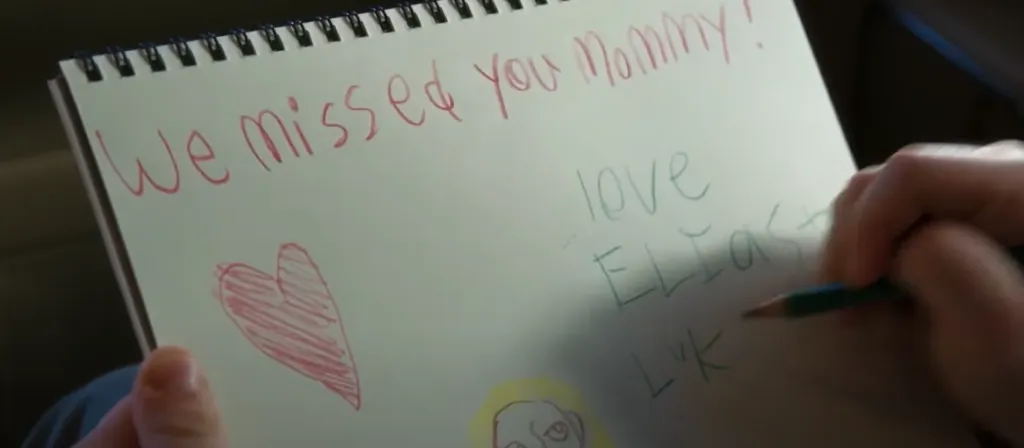 We missed you Mommy!
love
ELIast
Luk